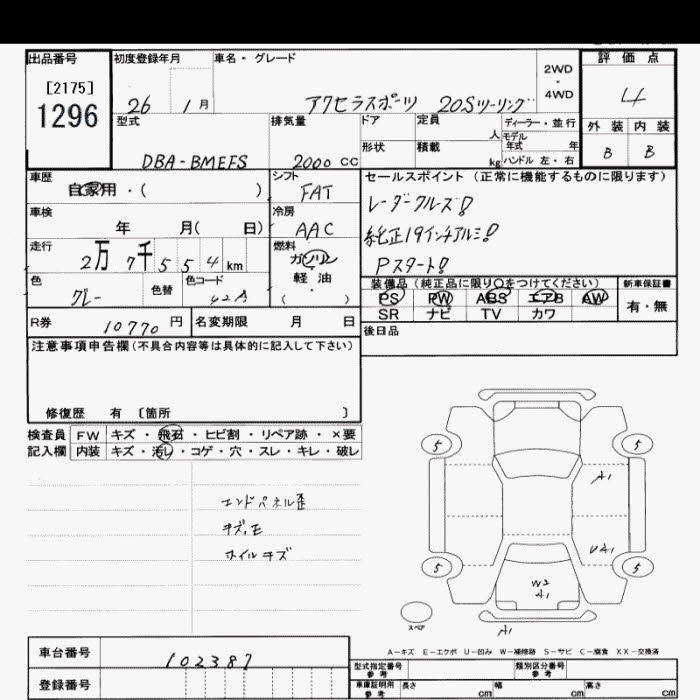 出品番号 初度登録年月 車名・グレード 評価点
[2175]
1296
26 1月 アクセラスポーツ 20Sツーリング 2WD・4WD 4
型式 排気量 ドア 定員 人 ディーラー・並行 外装 内装
形状 積載 kg モデル年式 年 B B
DBA-BMEFS 2000 cc ハンドル 左・右
車歴 シフト セールスポイント (正常に機能するものに限ります)
自家用・( ) FAT レーダークルーズ!
車検 冷房 純正19インチアルミ!
年 月( 日) AAC Pスタート!
走行 燃料
2万7千554km ガソリン
軽油
( ・ )
色 色替 色コード 装備品 (純正品に限り〇をつけてください) 新車保証書
グレー 42A PS PW ABS エアB AW 有・無
SR ナビ TV カワ
R券 10770円 名変期限 月 日 後日品
注意事項申告欄 (不具合内容等は具体的に記入して下さい)
修復歴 有 〔箇所 〕
検査員 FW キズ・飛石・ヒビ割・リペア跡・×要
記入欄 内装 キズ・汚レ・コゲ・穴・スレ・キレ・破レ
エンドパネル歪
キズ、E
ホイルキズ
5 5
A1
UA1
5 5
W2
A1
スペア
A1
A-キズ E-エクボ U-凹み W-補修跡 S-サビ C-腐食 XX-交換済
車台番号 102387 型式指定番号 参考 類別区分番号 参考
登録番号 車庫証明用 参考 長さ cm 幅 cm 高さ cm